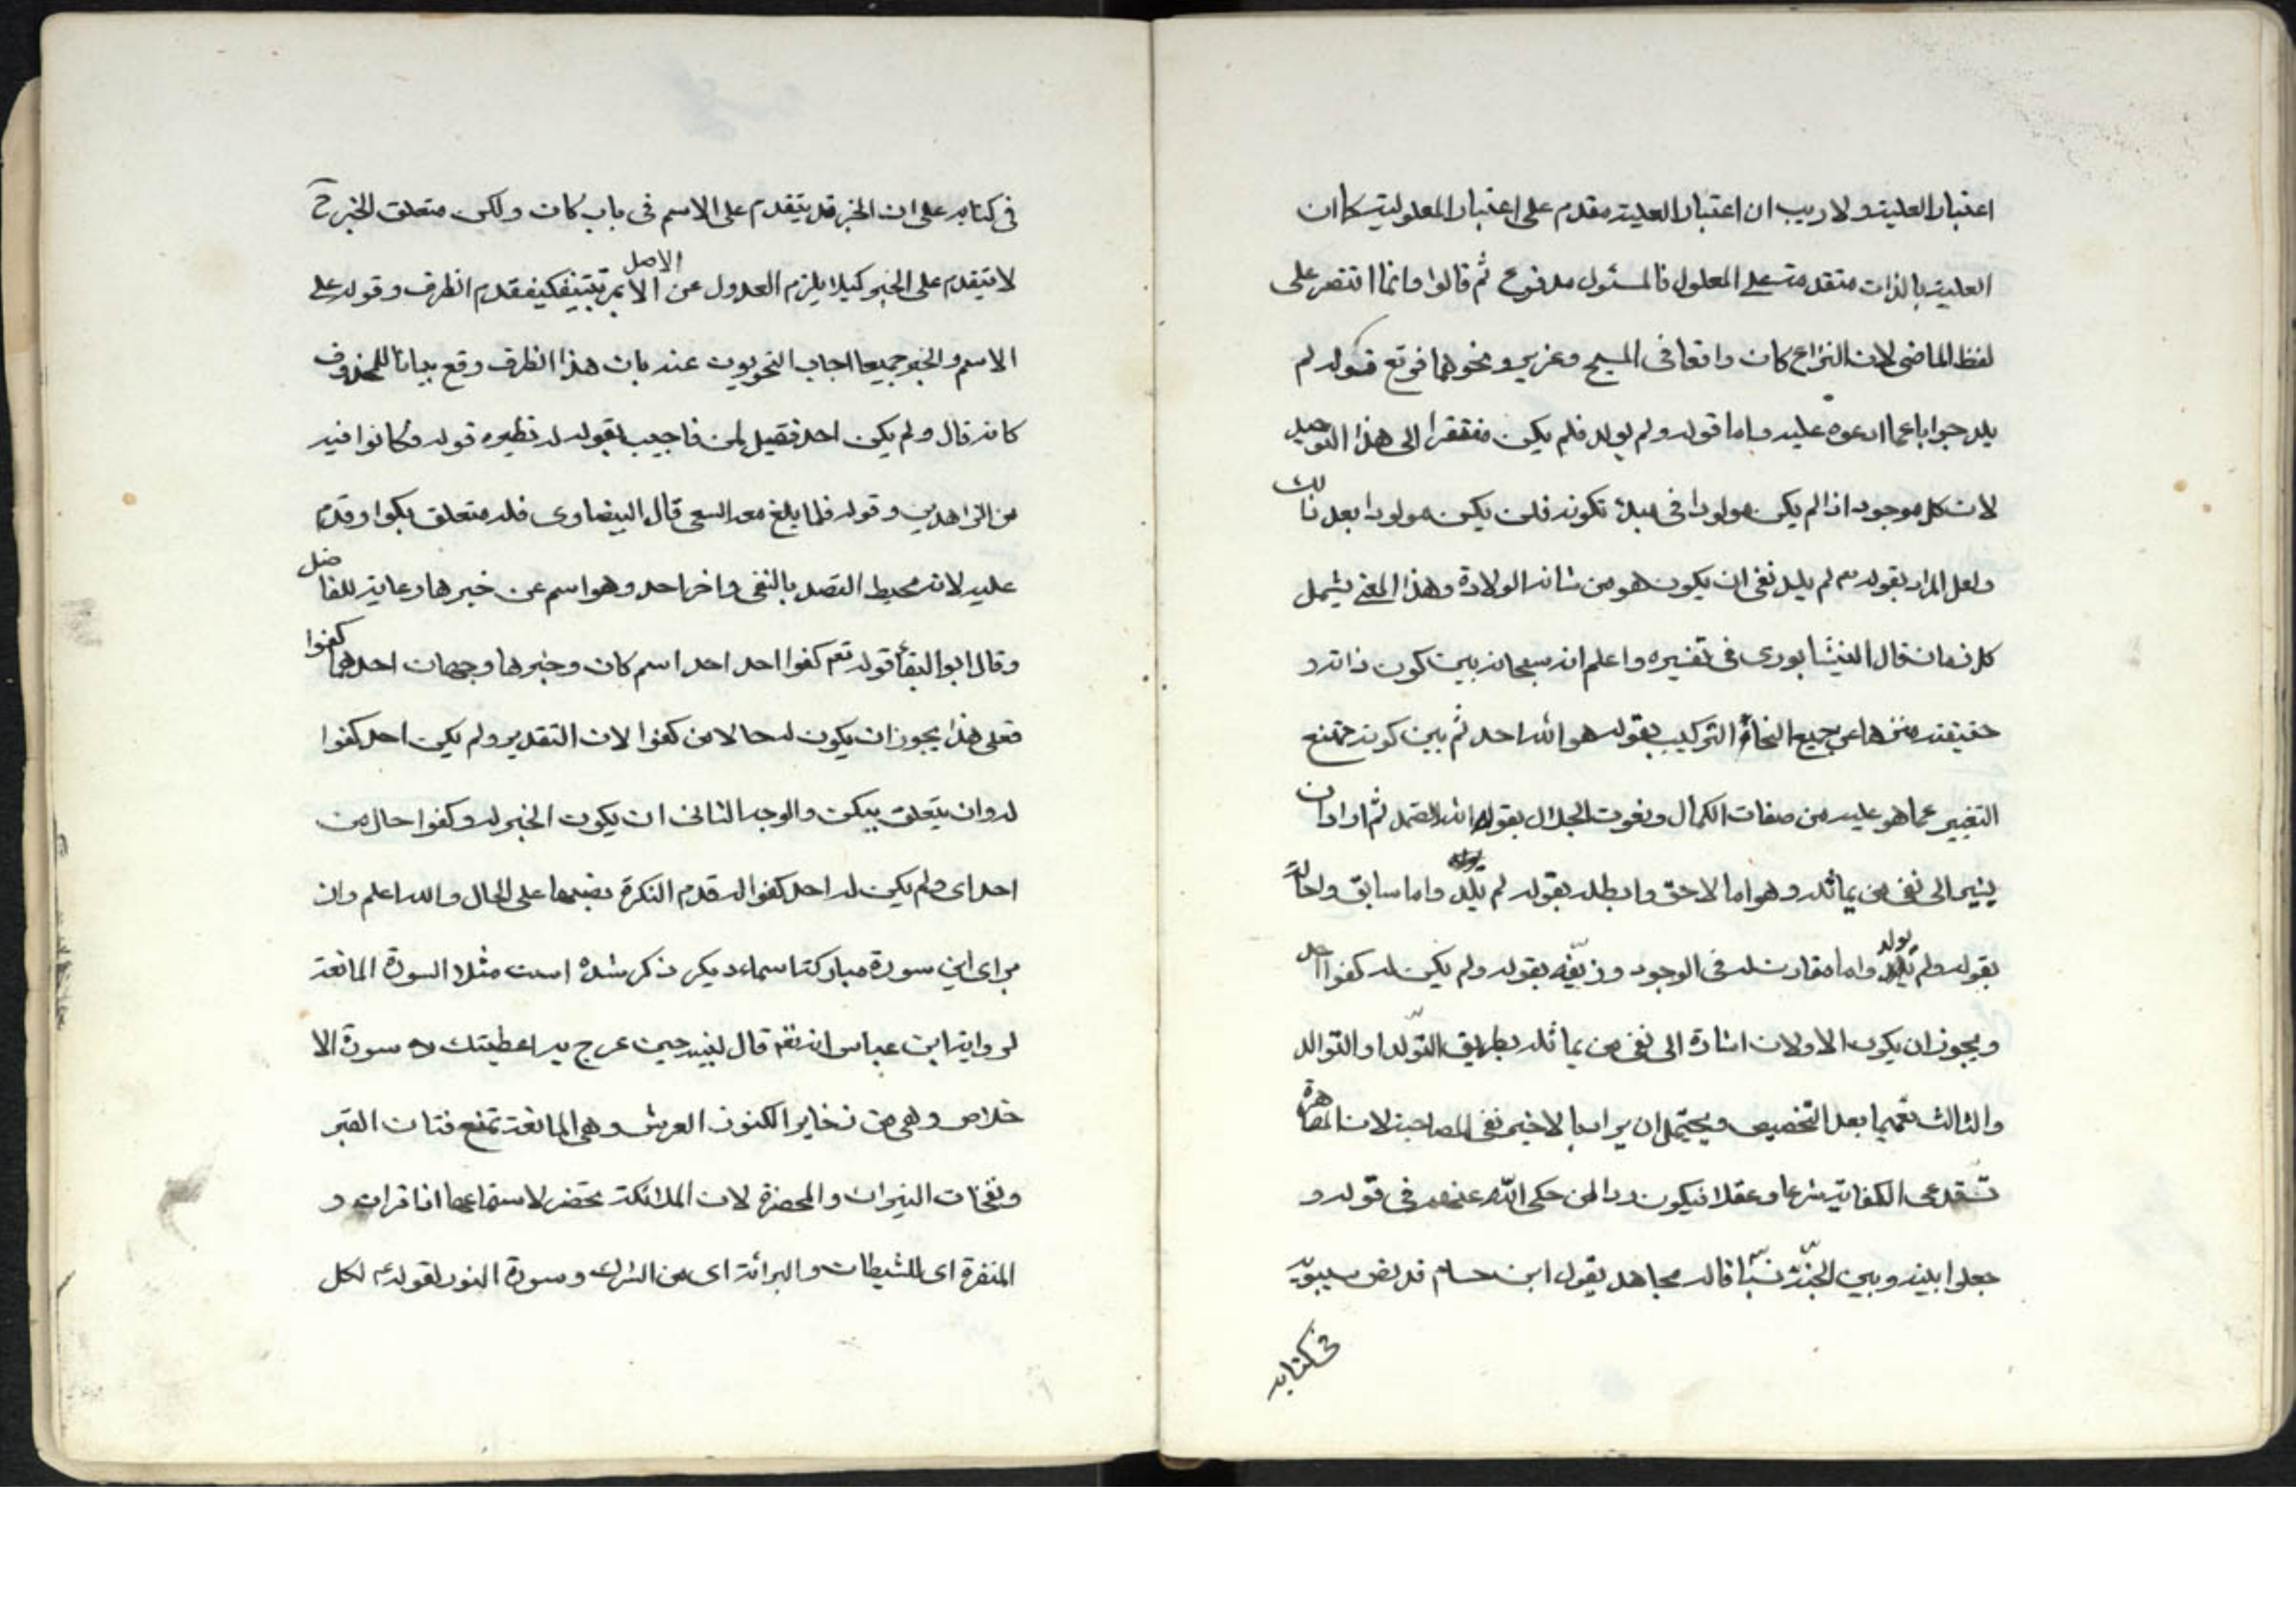 اعتبار العلية ولا ريب ان اعتبار العلية مقدم على اعتبار المعلولية كما ان
العلية بالذات متقدمة على المعلول فالمسئول مدفوع ثم قالوا وانما اقتصر على
لفظ الماضى لان النزاع كان واقعا فى المسيح وعزير ونحوهما فوقع قوله لم
يلد جوابا عما ادعوه عليه واما قوله ولم يولد فلم يكن مفتقرا الى هذا التوجيه
لان كل موجود اذا لم يكن مولودا فى مبدء تكونه فلن يكون مولودا بعد ذلك
ولعل المراد بقوله تع لم يلد نفى ان يكون هو من شانه الولادة وهذا المعنى يشمل
كل زمان قال النيشابورى فى تفسيره واعلم انه سبحانه بين كون ذاته و
حقيقته منزها عن جميع انحاء التركيب بقوله هو الله احد ثم بين كونه ممتنع
التغيير عما هو عليه من صفات الكمال ونعوت الجلال بقوله الله الصمد ثم اراد ان
يشير الى نفى من يماثله وهو اما لاحق وابطله بقوله لم يلد واما سابق واحاله
بقوله ولم يولد واما مقارن له فى الوجود وزيفه بقوله ولم يكن له كفوا احد
ويجوز ان يكون الاولان اشارة الى نفى من يماثله بطريق التولد او التوالد
والثالث تعميما بعد التخصيص ويحتمل ان يراد بالاخير نفى المصاحبة لان المصاهرة
تستدعى الكفاية شرعا وعقلا فيكون ردا لمن حكى الله عنهم فى قوله و
جعلوا بينه وبين الجنة نسبا قاله مجاهد يقول ابن حسام قد نص سيبويه
فى كتابه
فى كتابه على ان الخبر قد يتقدم على الاسم فى باب كان ولكن متعلق الخبر ح
لا يتقدم على الخبر كيلا يلزم العدول عن الاصل بمرتبتين فكيف قدم الظرف وقوله على
الاسم والخبر جميعا اجاب النحويون عنه بان هذا الظرف وقع بيانا للمحذوف
كانه قال ولم يكن احد فقيل لمن فاجيب بقوله له نظيره قوله وكانوا فيه
من الزاهدين وقوله فلما بلغ معه السعى قال البيضاوى فله متعلق بكفوا وقدم
عليه لانه محيط القصد بالنفى واخر احد وهو اسم عن خبرها رعاية للفاصل
وقال ابو البقاء قوله تع كفوا احد احد اسم كان وخبرها وجهان احدهما كفوا
فعلى هذا يجوز ان يكون له حالا من كفوا لان التقدير ولم يكن احد كفوا
له وان يتعلق بيكن والوجه الثانى ان يكون الخبر له وكفوا حال من
احد اى ولم يكن له احد كفوا له قدم النكرة نصبها على الحال والله اعلم وان
براى اين سورة مباركة اسماء ديكر ذكر شده است مثلا السورة المانعة
لرواية ابن عباس انه تع قال لنبيه حين عرج به اعطيتك سورة الا
خلاص وهى من ذخاير الكنوز العرش وهى المانعة تمنع فتان القبر
ونفحات النيران والمحضرة لان الملائكة تحضر لاستماعها اذا قرات و
المنفرة اى للشيطان والبرائة اى من الشرك وسورة النور لقوله لكل